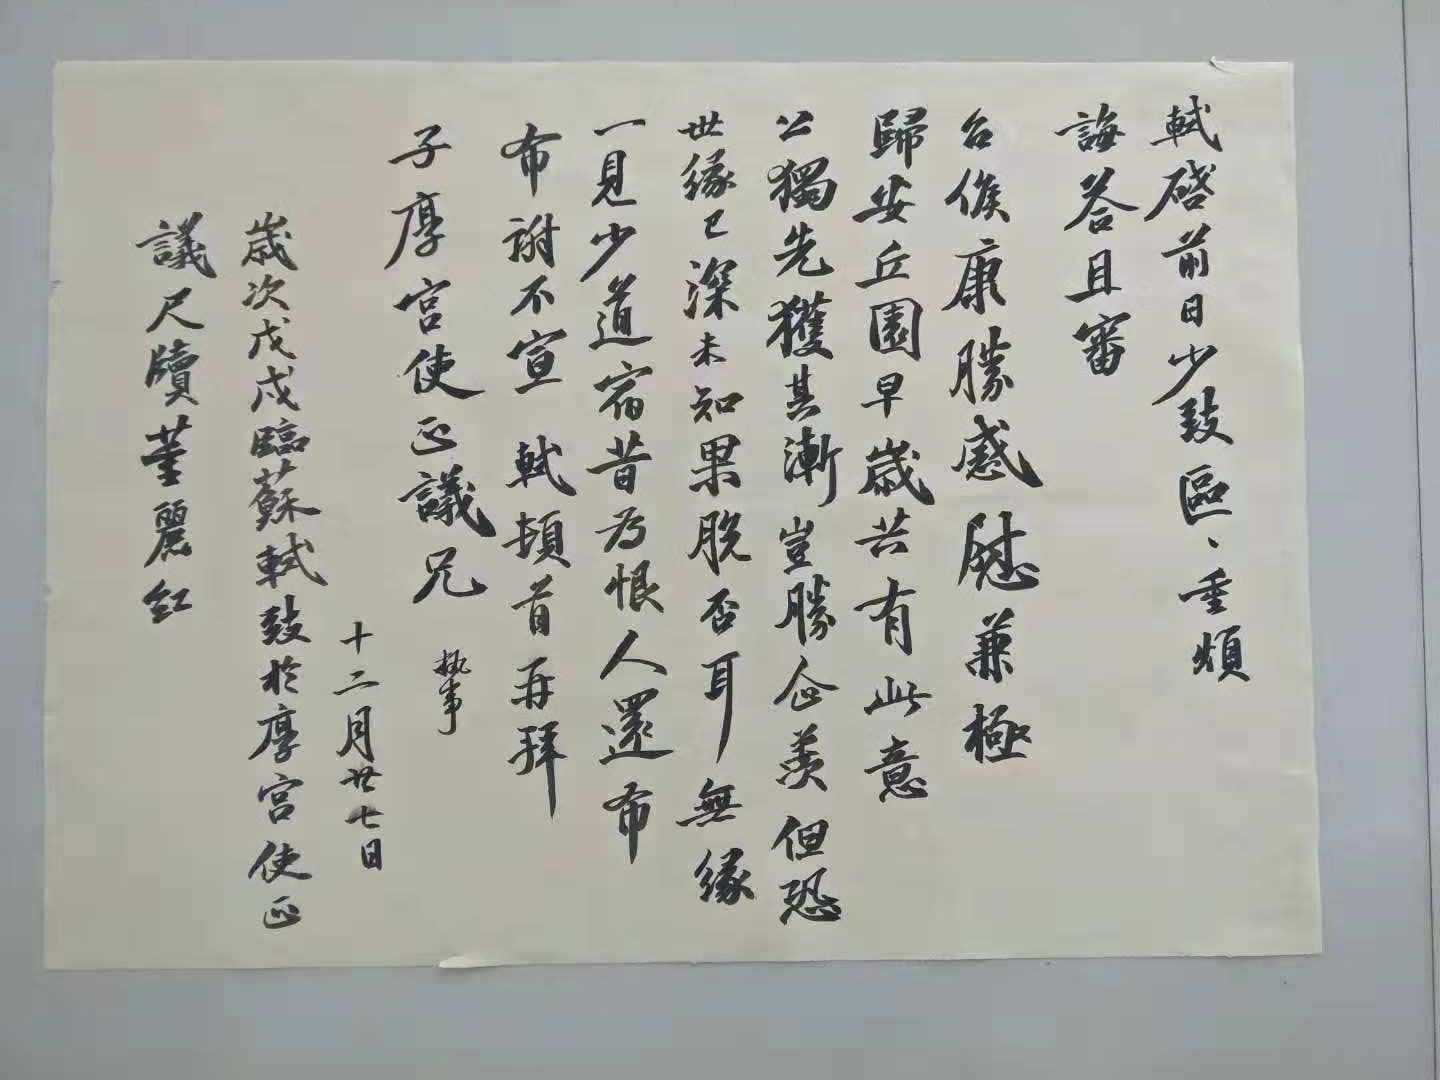 軾啓前日少致區、重煩
誨荅且審
台候康勝感慰兼極
歸安丘園早歲共有此意
公獨先獲其漸豈勝企羨但恐
世緣已深未知果脫否耳無緣
一見少道宿昔為恨人還布
布謝不宣 軾頓首再拜
子厚宮使正議兄 執事
十二月廿七日
歲次戊戌臨蘇軾致於厚宮使正
議尺牘董麗紅